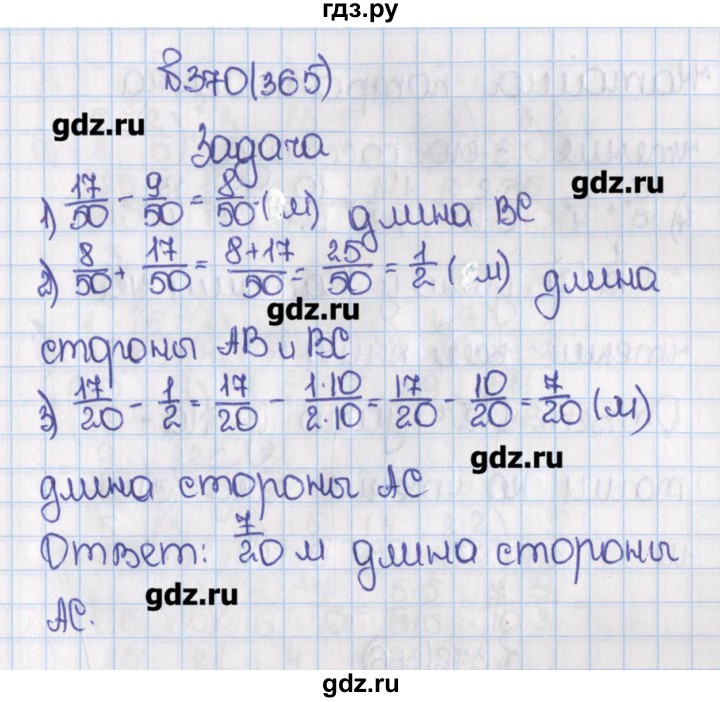 гдз.ру
В370(365)
gdz.ru
Задача
gdz.ru
1) 17/50 - 9/50 = 8/50 (м) длина ВС
2) 8/50 + 17/50 = 8+17/50 = 25/50 = 1/2 (м) длина
gdz.ru
стороны АВ и ВС
3) 17/20 - 1/2 = 17/20 - 1·10/2·10 = 17/20 - 10/20 = 7/20 (м)
gdz.ru
длина стороны АС
Ответ: 7/20 м длина стороны
gdz.ru
АС.
gdz.ru